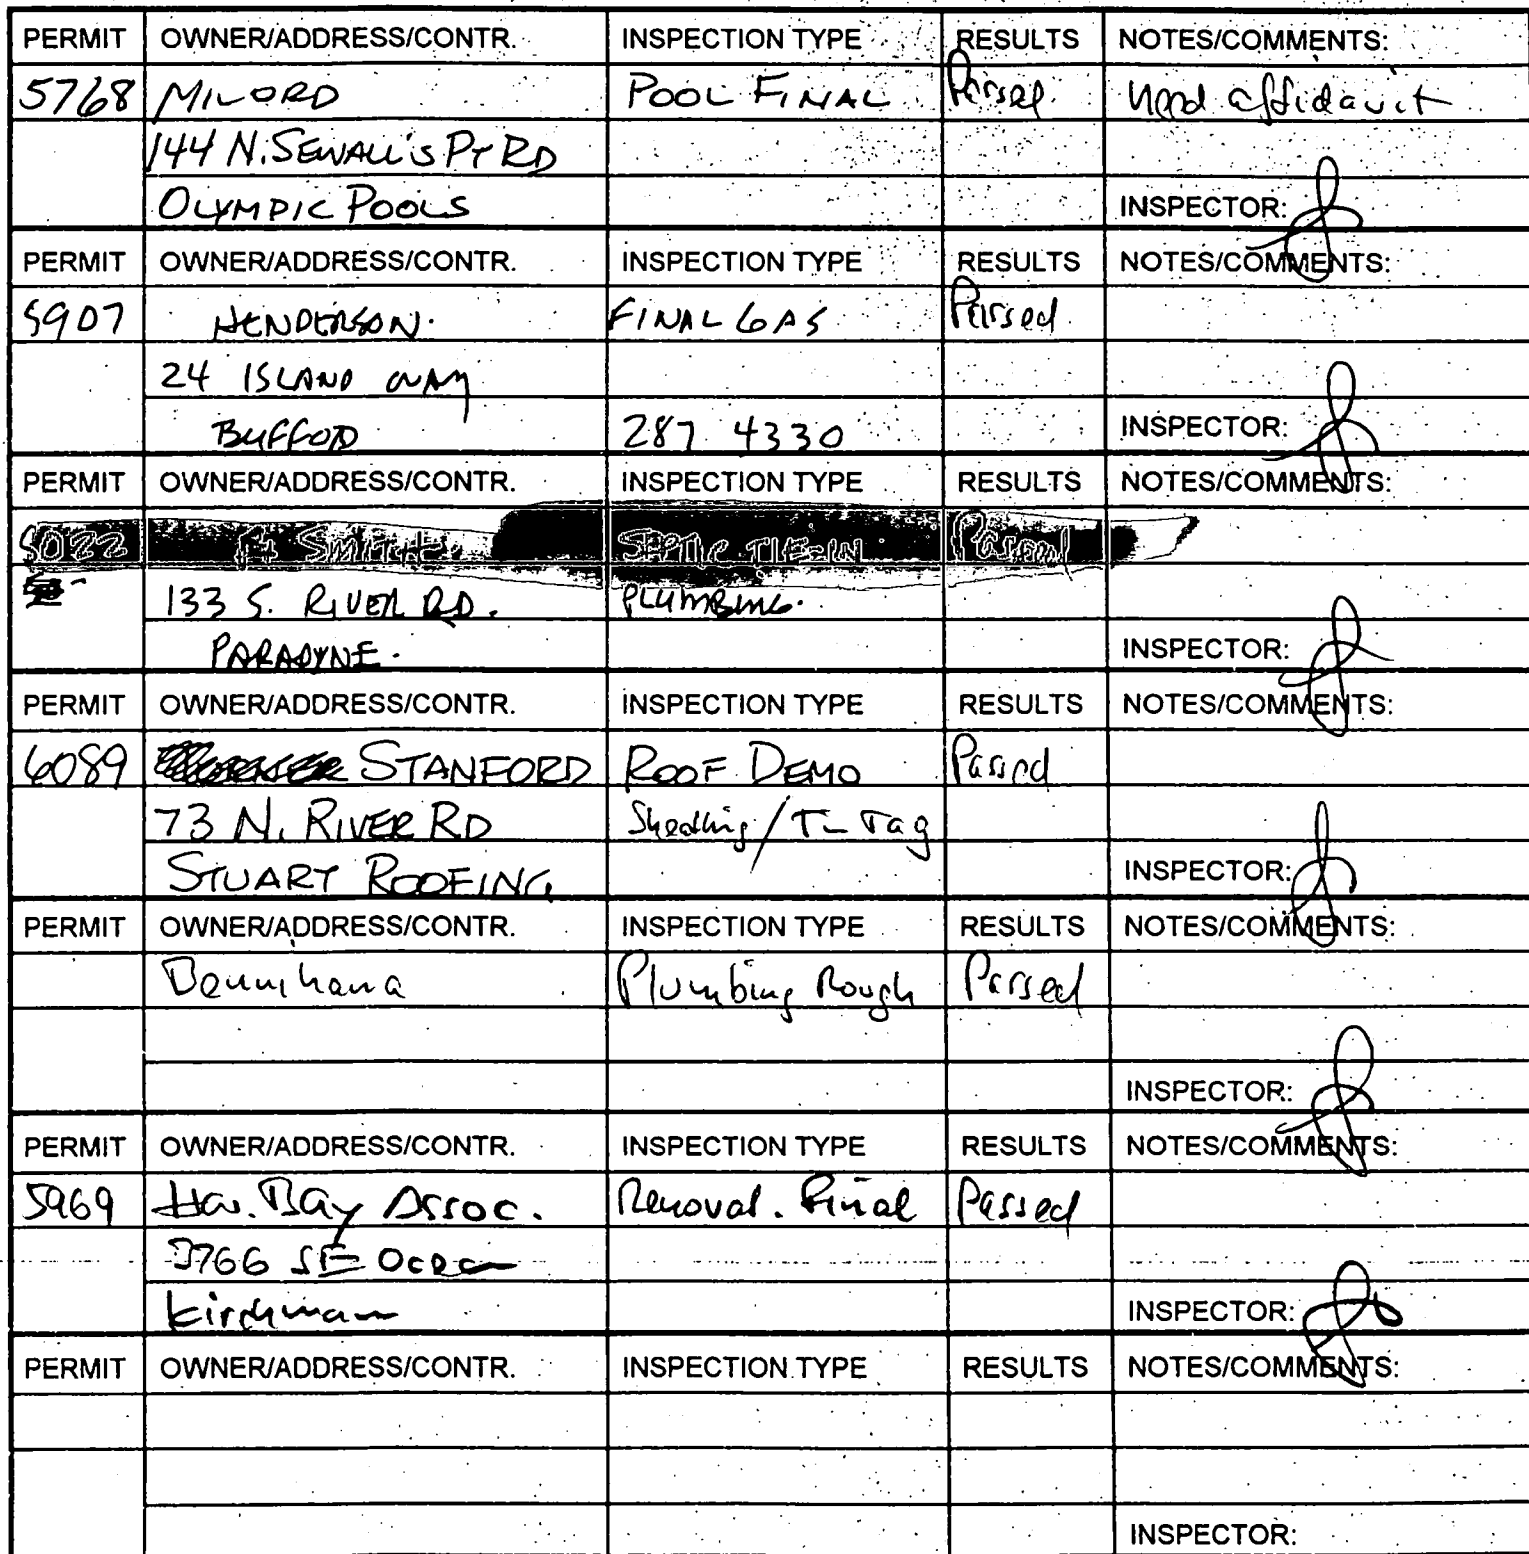 PERMIT OWNER/ADDRESS/CONTR. INSPECTION TYPE RESULTS NOTES/COMMENTS:
5768 MILORD POOL FINAL Passed need affidavit
144 N. SEWALL'S PT RD
OLYMPIC POOLS INSPECTOR:
PERMIT OWNER/ADDRESS/CONTR. INSPECTION TYPE RESULTS NOTES/COMMENTS:
5907 HENDERSON. FINAL GAS Passed
24 ISLAND WAY
BUFFORD 287 4330 INSPECTOR:
PERMIT OWNER/ADDRESS/CONTR. INSPECTION TYPE RESULTS NOTES/COMMENTS:
SMITH SEPTIC TIE-IN Passed
133 S. RIVER RD. PLUMBING.
PARADYNE. INSPECTOR:
PERMIT OWNER/ADDRESS/CONTR. INSPECTION TYPE RESULTS NOTES/COMMENTS:
6089 STANFORD ROOF DEMO Passed
73 N. RIVER RD Sheathing/T-Tag
STUART ROOFING INSPECTOR:
PERMIT OWNER/ADDRESS/CONTR. INSPECTION TYPE RESULTS NOTES/COMMENTS:
Plumbing Rough Passed
INSPECTOR:
PERMIT OWNER/ADDRESS/CONTR. INSPECTION TYPE RESULTS NOTES/COMMENTS:
5969 Har. Bay Assoc. Removal. Final Passed
3766 SE Ocean
Kirchman INSPECTOR:
PERMIT OWNER/ADDRESS/CONTR. INSPECTION TYPE RESULTS NOTES/COMMENTS:
INSPECTOR: